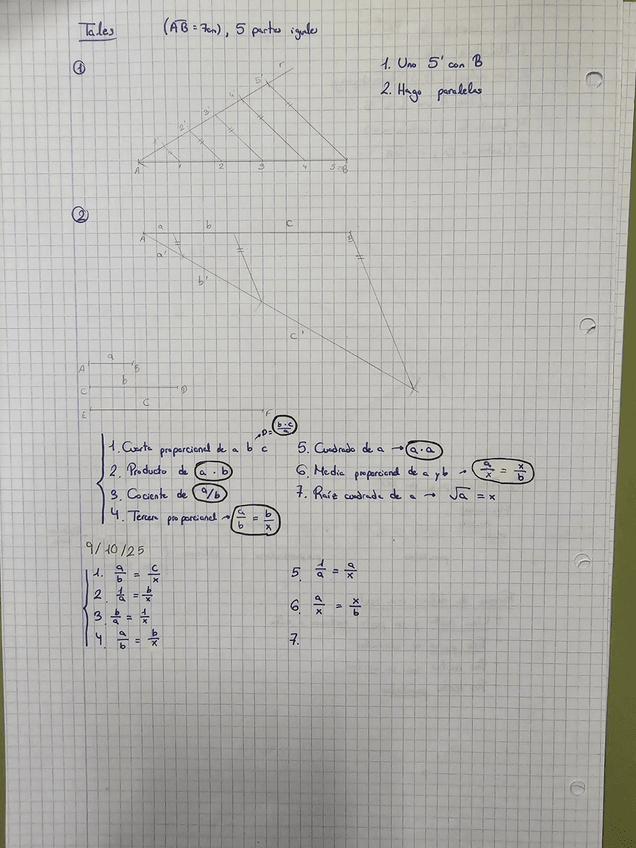 Tales (AB = 7cm), 5 partes iguales
1
1. Uno 5' con B
2. Hago paralelas
r
5'
4'
3'
2'
1'
A 1 2 3 4 5 B
2
a b c
A B
a'
b'
c'
a
A B
b
C D
c
E F
D = b·c/a
1. Cuarta proporcional de a b c
2. Producto de a · b
3. Cociente de a/b
4. Tercera proporcional → a/b = b/x
5. Cuadrado de a → a · a
6. Media proporcional de a y b → a/x = x/b
7. Raíz cuadrada de a → √a = x
9/10/25
1. a/b = c/x
2. 1/a = b/x
3. b/a = 1/x
4. a/b = b/x
5. 1/a = a/x
6. a/x = x/b
7.